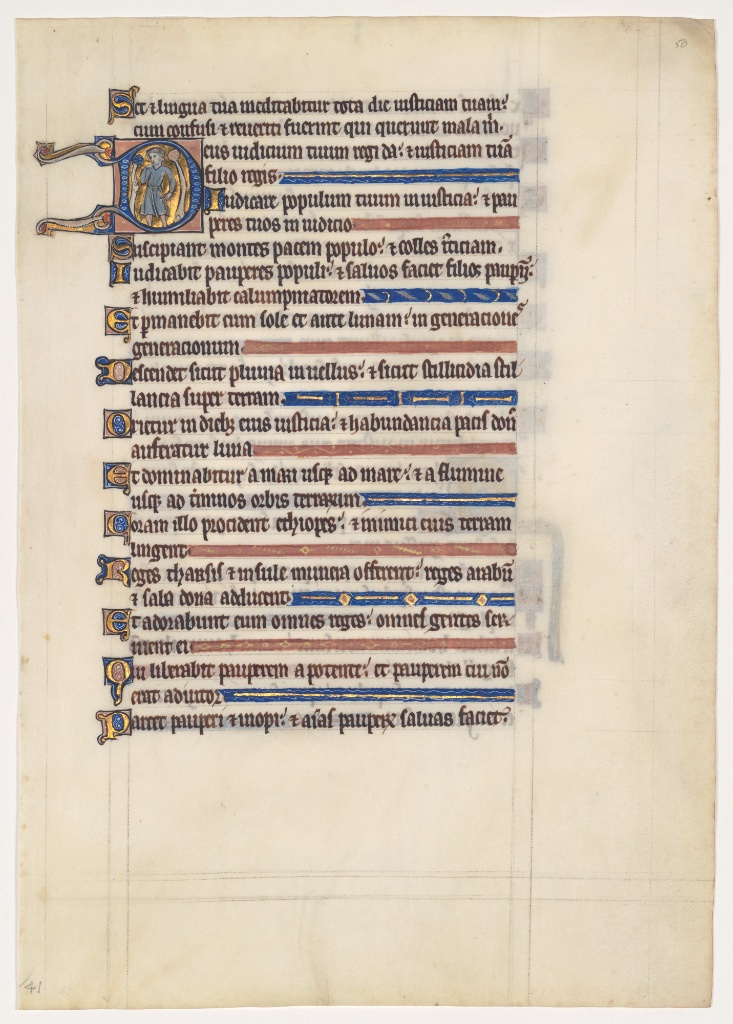 50
Set & lingua tua meditabitur tota die iusticiam tuam:
cum confusi & reveriti fuerint qui querunt mala m̄.
Deus iudicium tuum regi da: & iusticiam tuā
filio regis.
Iudicare populum tuum in iusticia: & pau
peres tuos in iudicio.
Suscipiant montes pacem populo: & colles iusticiam.
Iudicabit pauperes populi: & saluos faciet filios paupm̄:
& humiliabit calumpniatorem.
Et ꝑmanebit cum sole et ante lunam: in generatione
generacionum.
Descendet sicut pluuia in uellus: & sicut stillicidia stil
lancia super terram.
Orietur in diebꝫ eius iusticia: & habundancia pacis don̄
auferatur luna.
Et dominabitur a mari usqꝫ ad mare: & a flumine
usqꝫ ad t̄minos orbis terrarum.
Coram illo procident ethiopes: & inimici eius terram
lingent.
Reges tharsis & insule munera offerent: reges arabū
& saba dona adducent.
Et adorabunt eum omnes reges: omnes gentes ser
uient ei.
Qui liberabit pauperem a potente: et pauperem cui nō
erat adiutor.
Parcet pauperi & inopi: & aīas pauperꝝ saluas faciet:
41